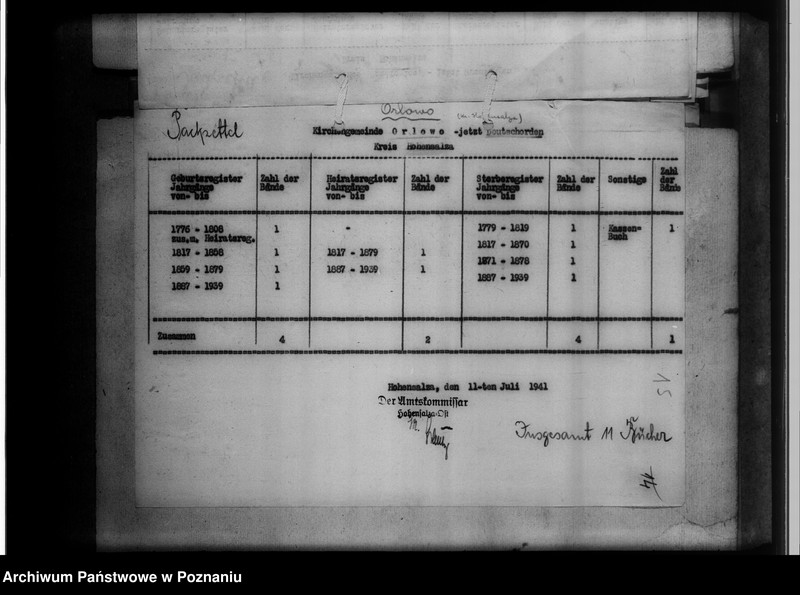 Orlowo
Packzettel
Kirchengemeinde O r l o w o -jetzt
Kreis Hohensalza
Geburtsregister Jahrgänge von- bis
Zahl der Bände
Heiratsregister Jahrgänge von- bis
Zahl der Bände
Sterberegister Jahrgänge von- bis
Zahl der Bände
Sonstige
Zahl der Bände
1776 - 1808 1 - 1779 - 1819 1 Kassen- 1
zus.u. Heiratsreg. Buch
1817 - 1870 1
1817 - 1858 1 1817 - 1879 1
1871 - 1878 1
1859 - 1879 1 1887 - 1939 1
1887 - 1939 1
1887 - 1939 1
Zusammen 4 2 4 1
Hohensalza, den 11-ten Juli 1941
Der Amtskommissar
Hohensalza-Ost
Insgesamt 11 Bücher
Archiwum Państwowe w Poznaniu